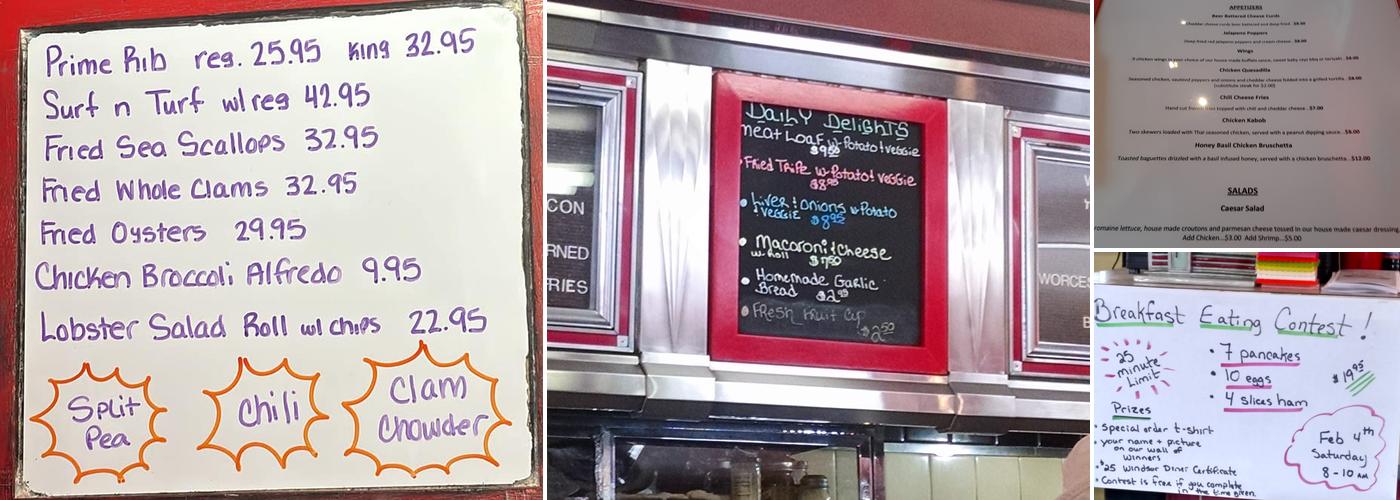 Prime Rib reg. 25.95 King 32.95
Surf n Turf w/reg 42.95
Fried Sea Scallops 32.95
Fried Whole Clams 32.95
Fried Oysters 29.95
Chicken Broccoli Alfredo 9.95
Lobster Salad Roll w/ chips 22.95
Split
Pea
Chili
Clam
Chowder
CON
RNED
RIES
Daily Delights
Meat Loaf w-Potato & veggie
Fried Tripe w-Potato & veggie
• Liver & Onions w-Potato
& veggie
• Macaroni & Cheese
w-Roll $7.50
• Homemade Garlic
Bread
• Fresh Fruit Cup
$2.50
WORCES
B
APPETIZERS
Beer Battered Cheese Curds
cheddar cheese curds beer battered and deep fried
Jalapeno Poppers
Deep fried red jalapeno poppers and cream cheese
Wings
Chicken Quesadilla
Seasoned chicken, sauteed peppers and onions and cheddar cheese folded into a grilled tortilla
(substitute steak for $2.00)
Chili Cheese Fries
Hand cut fries topped with chili and cheddar cheese...$7.00
Chicken Kabob
Two skewers loaded with Thai seasoned chicken, served with a peanut dipping sauce...$8.00
Honey Basil Chicken Bruschetta
Toasted baguettes drizzled with a basil infused honey, served with a chicken bruschetta...$12.00
SALADS
Caesar Salad
romaine lettuce, house made croutons and parmesan cheese tossed in our house made caesar dressing
Add Chicken...$3.00 Add Shrimp...$5.00
Breakfast Eating Contest!
25
minute
Limit
• 7 pancakes
• 10 eggs
• 4 slices ham
$19.95
Prizes
• Special order t-shirt
• your name + picture
on our wall of
winners
• $25 Windsor Diner Certificate
• Contest is free if you complete
in the time given.
Feb 4th
Saturday
8-10 AM